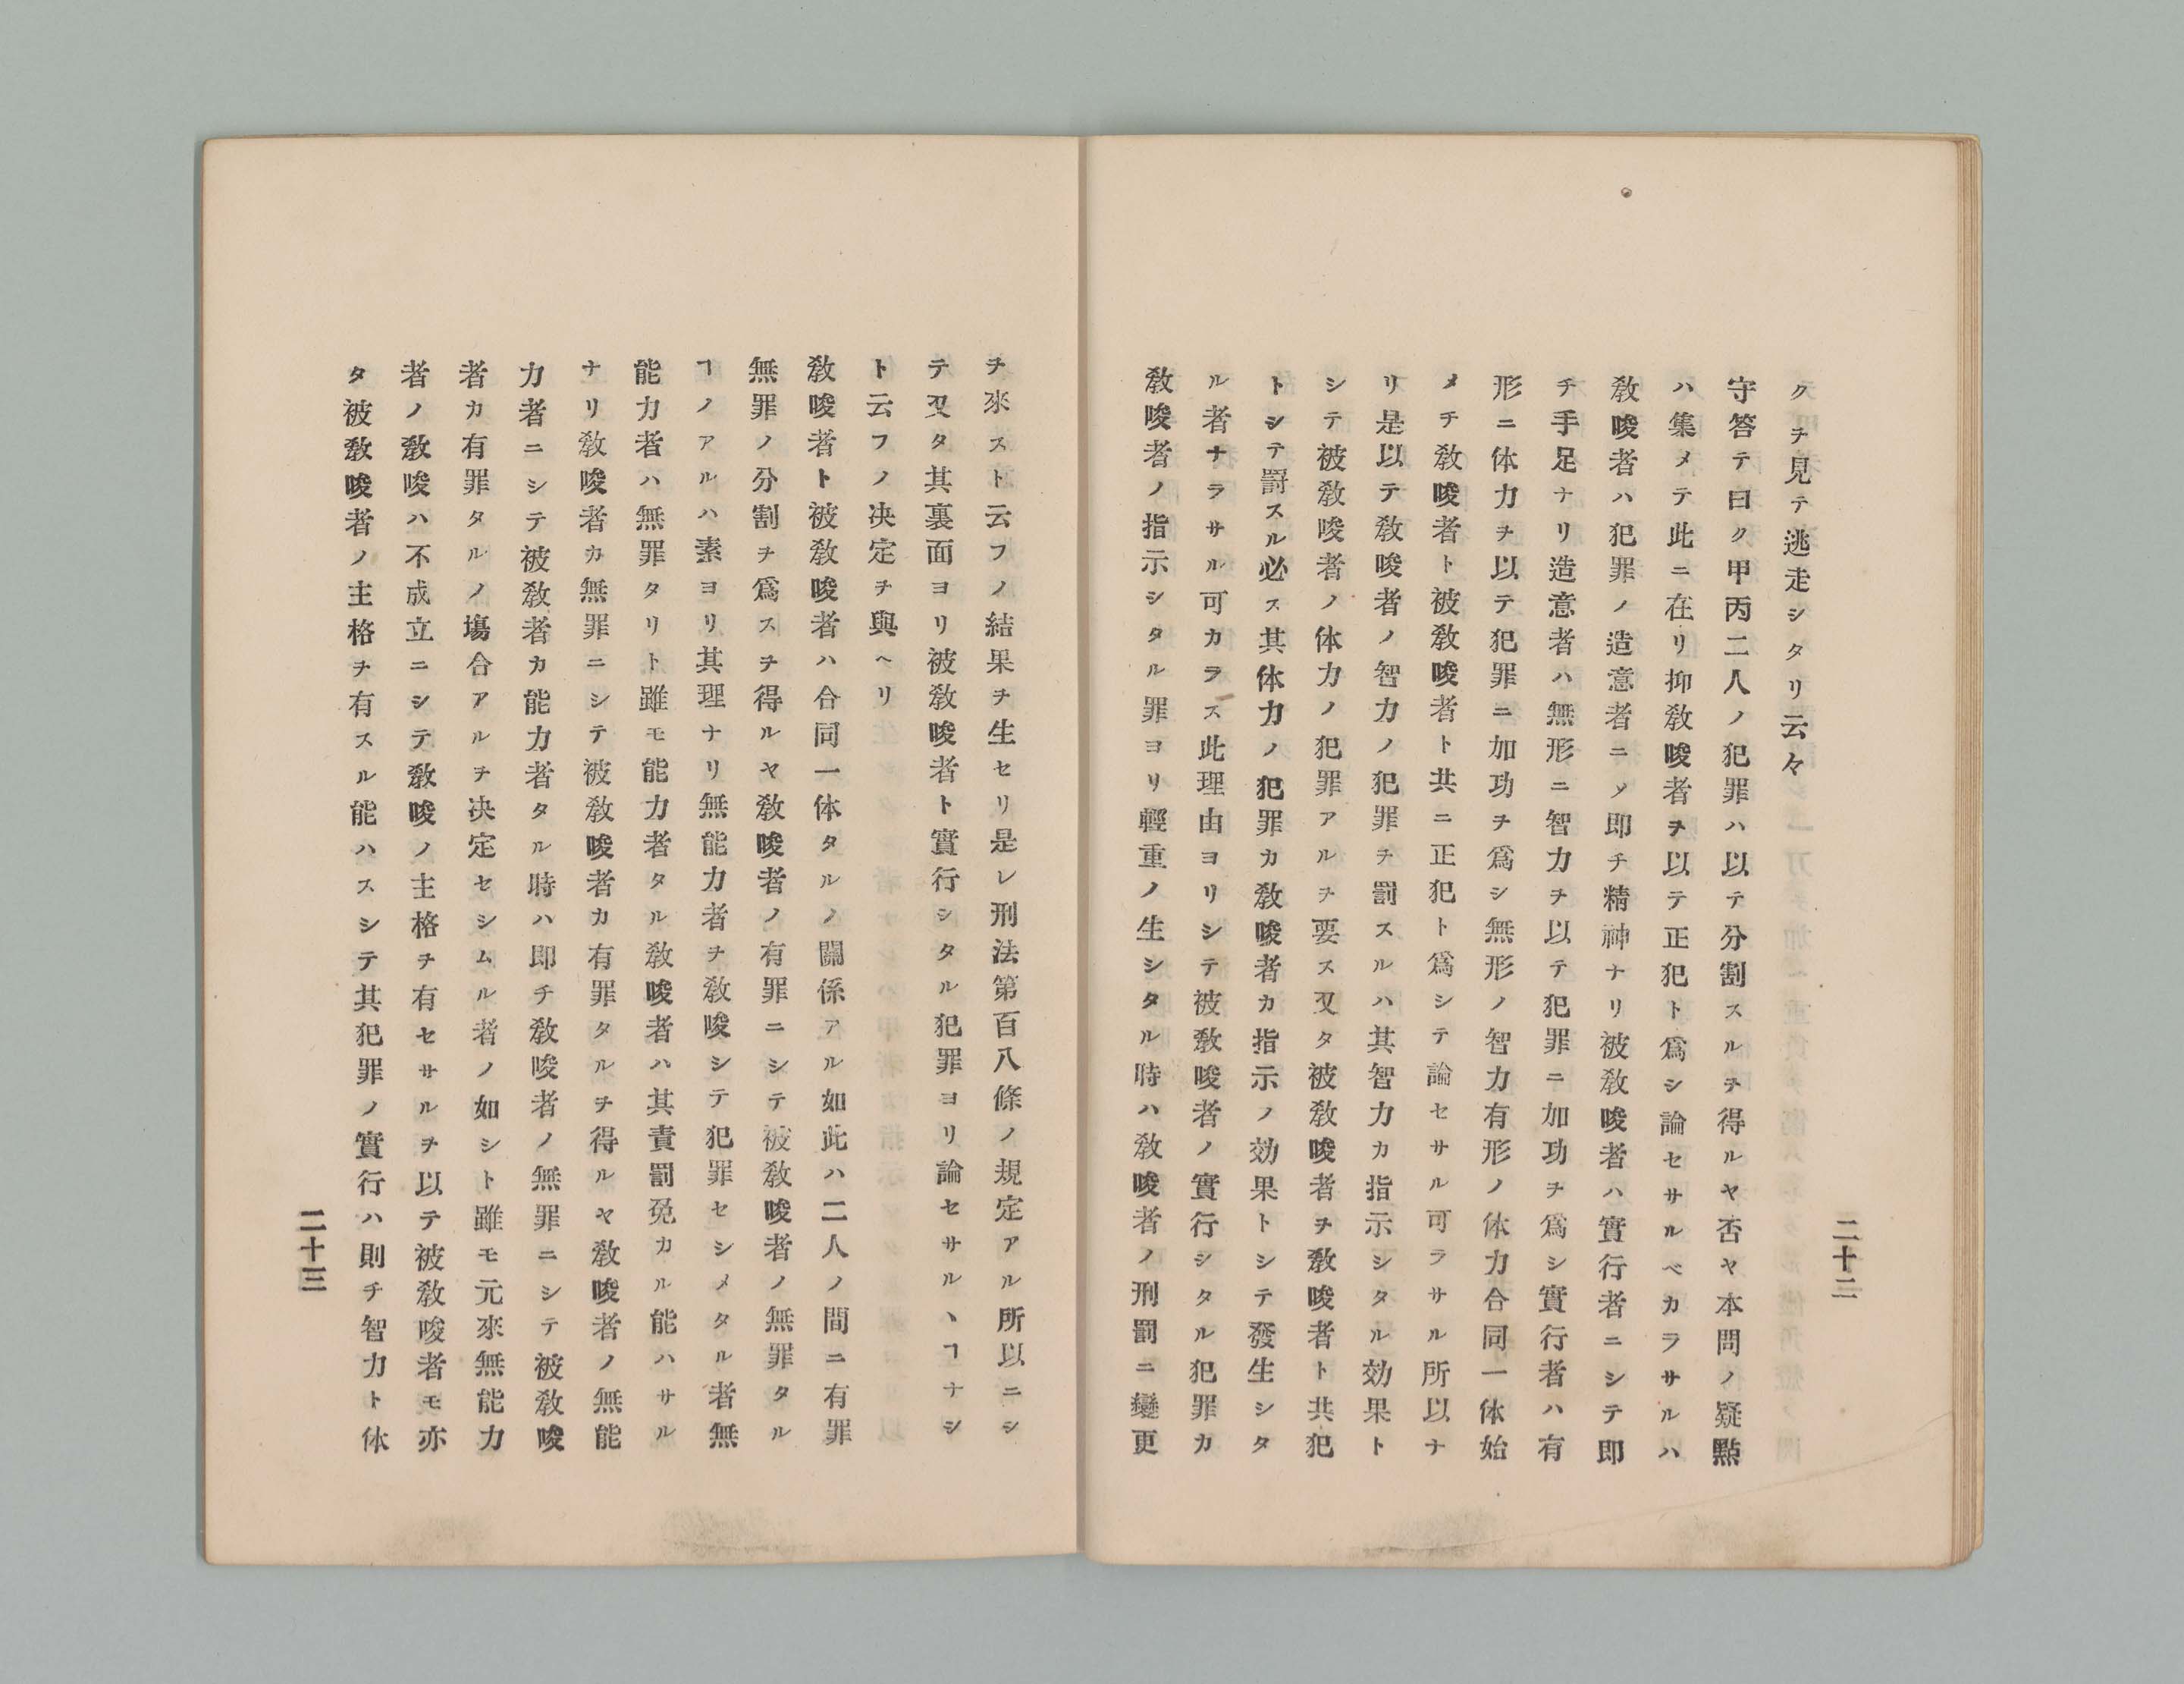 二十二
クヲ見テ逃走シタリ云々
守答テ曰ク甲丙二人ノ犯罪ハ以テ分割スルヲ得ルヤ否ヤ本問ノ疑點
ハ集メテ此ニ在リ抑敎唆者ヲ以テ正犯ト爲シ論セサルベカラサルハ
敎唆者ハ犯罪ノ造意者ニメ即チ精神ナリ被敎唆者ハ實行者ニシテ即
チ手足ナリ造意者ハ無形ニ智力ヲ以テ犯罪ニ加功ヲ爲シ實行者ハ有
形ニ体力ヲ以テ犯罪ニ加功ヲ爲シ無形ノ智力有形ノ体力合同一体始
メテ敎唆者ト被敎唆者ト共ニ正犯ト爲シテ論セサル可ラサル所以ナ
リ是以テ敎唆者ノ智力ノ犯罪ヲ罰スルハ其智力カ指示シタル効果ト
シテ被敎唆者ノ体力ノ犯罪アルヲ要ス又タ被敎唆者ヲ敎唆者ト共犯
トシテ罰スル必ス其体力ノ犯罪カ敎唆者カ指示ノ効果トシテ發生シタ
ル者ナラサル可カラス此理由ヨリシテ被敎唆者ノ實行シタル犯罪カ
敎唆者ノ指示シタル罪ヨリ輕重ノ生シタル時ハ敎唆者ノ刑罰ニ變更
ヲ來スト云フノ結果ヲ生セリ是レ刑法第百八條ノ規定アル所以ニシ
テ又タ其裏面ヨリ被敎唆者ト實行シタル犯罪ヨリ論セサルヽヿナシ
ト云フノ决定ヲ與ヘリ
敎唆者ト被敎唆者ハ合同一体タルノ關係アル如此ハ二人ノ間ニ有罪
無罪ノ分割ヲ爲スヲ得ルヤ敎唆者ノ有罪ニシテ被敎唆者ノ無罪タル
ヿノアルハ素ヨリ其理ナリ無能力者ヲ敎唆シテ犯罪セシメタル者無
能力者ハ無罪タリト雖モ能力者タル敎唆者ハ其責罰免カル能ハサル
ナリ敎唆者カ無罪ニシテ被敎唆者カ有罪タルヲ得ルヤ敎唆者ノ無能
力者ニシテ被敎者カ能力者タル時ハ即チ敎唆者ノ無罪ニシテ被敎唆
者カ有罪タルノ塲合アルヲ决定セシムル者ノ如シト雖モ元來無能力
者ノ敎唆ハ不成立ニシテ敎唆ノ主格ヲ有セサルヲ以テ被敎唆者モ亦
タ被敎唆者ノ主格ヲ有スル能ハスシテ其犯罪ノ實行ハ則チ智力ト体
二十三